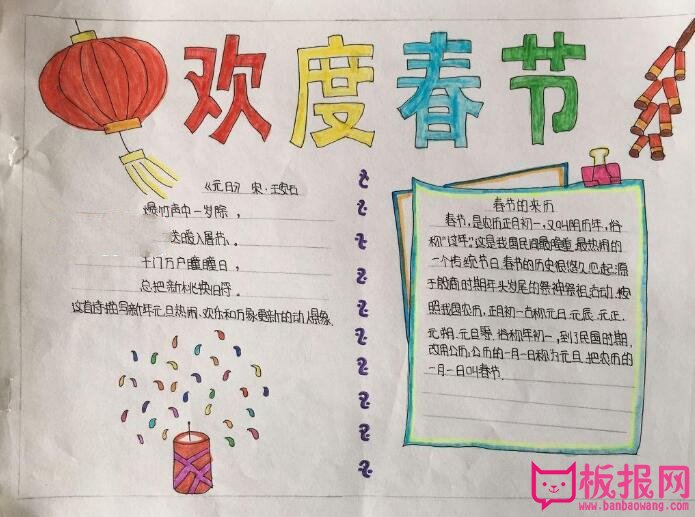 欢度春节
《元日》 宋·王安石
爆竹声中一岁除，
送暖入屠苏。
千门万户曈曈日，
总把新桃换旧符。
这首诗描写新年元旦热闹、欢乐和万象更新的动人景象.
春节的来历
春节，是农历正月初一，又叫阴历年，俗
称"过年".这是我国民间最隆重、最热闹的
一个传统节日.春节的历史很悠久，它起源
于殷商时期年头岁尾的祭神祭祖活动.按
照我国农历，正月初一古称元日、元辰、元正、
元朔、元旦等，俗称年初一，到了民国时期，
改用公历，公历的一月一日称为元旦，把农历的
一月一日叫春节.
板报网
www.banbaowang.com